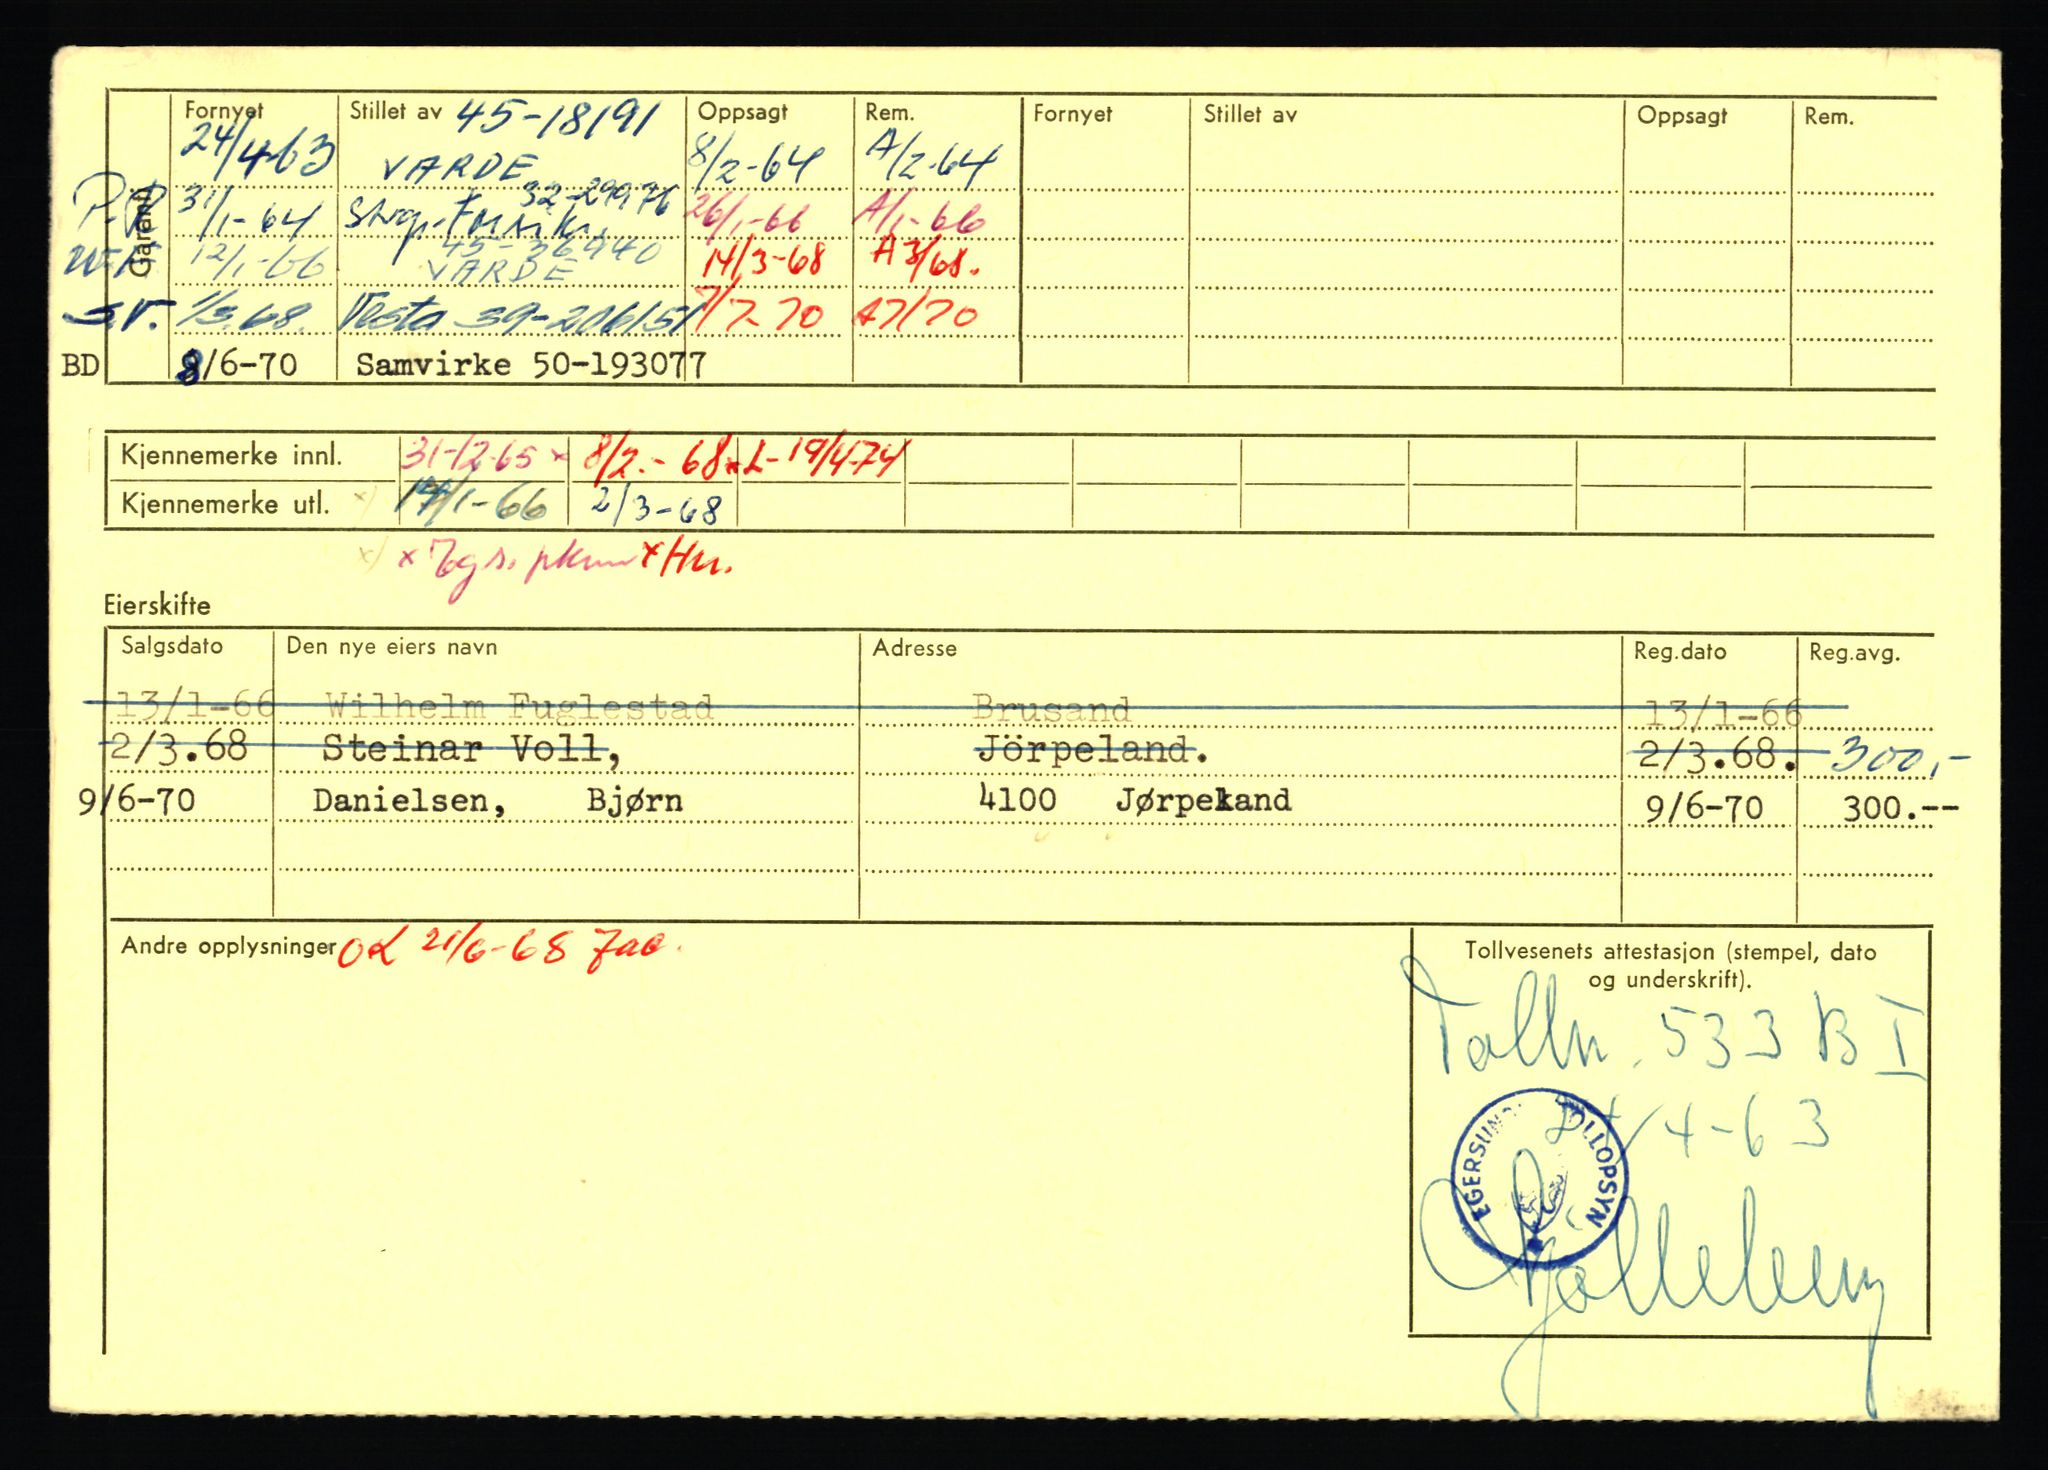 Garanti Fornyet Stillet av 45-18191 Oppsagt Rem. Fornyet Stillet av Oppsagt Rem.
24/4-63 VARDE 8/2-64 A/2-64
31/1-64 32-29976 26/1-66 A/1-66
12/1-66 45-36940 VARDE 14/3-68 A3/68.
S.V. 1/3.68. Vesta 39-206151 7/7-70 A7/70
BD 8/6-70 Samvirke 50-193077
Kjennemerke innl. 31-12-65 x 8/2.-68 x L-19/4-74
Kjennemerke utl. x) 14/1-66 2/3-68
x) x x Hn.
Eierskifte
Salgsdato Den nye eiers navn Adresse Reg.dato Reg.avg.
13/1-66 Wilhelm Fuglestad Brusand 13/1-66
2/3.68 Steinar Voll, Jörpeland. 2/3.68. 300,-
9/6-70 Danielsen, Bjørn 4100 Jørpeland 9/6-70 300.--
Andre opplysninger OK 21/6-68
Tollvesenets attestasjon (stempel, dato
og underskrift).
Tolln. 533 B I
24/4-63
EGERSUND TOLLOPSYN